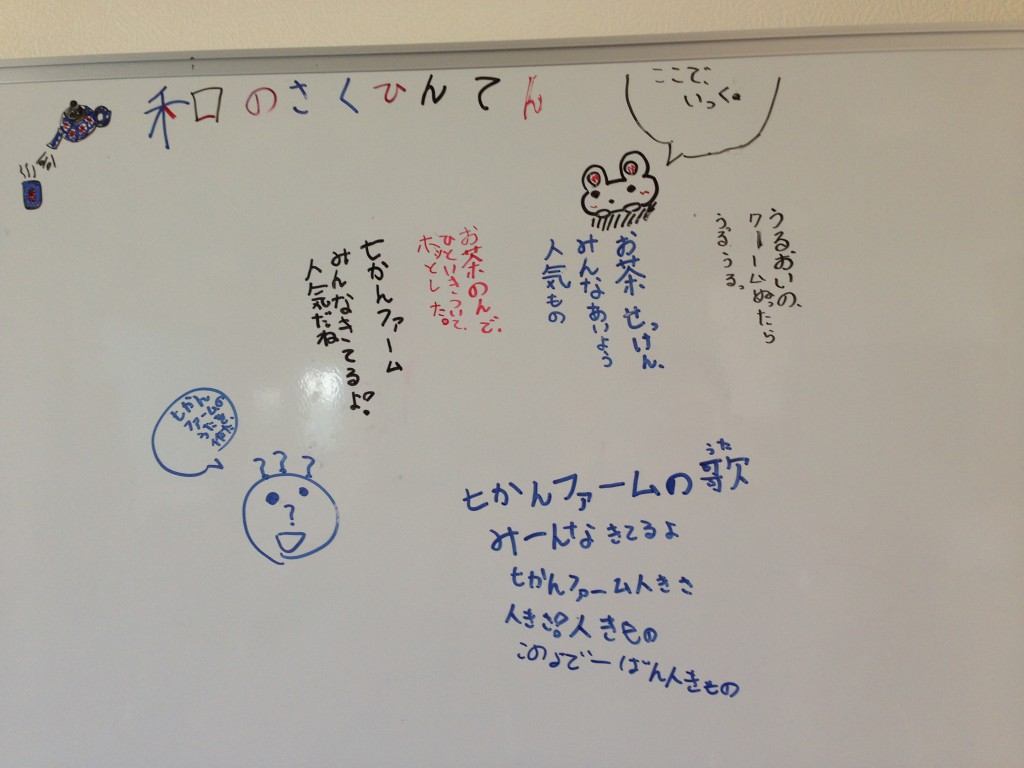 和のさくひんてん
ここで、
いっく。
うるおいの、
ワームぬったら
うるうる。
お茶せっけん、
みんなあいよう
人気もの
お茶のんで、
ひといきついて、
ホッとした。
七かんファーム
みんなきてるよ!
人気だね
七かん
ファームの
うたを
作た!
???
?
うた
七かんファームの歌
みーんなきてるよ
七かんファーム人きさ
人きさ!人きもの
このよで一ばん人きもの